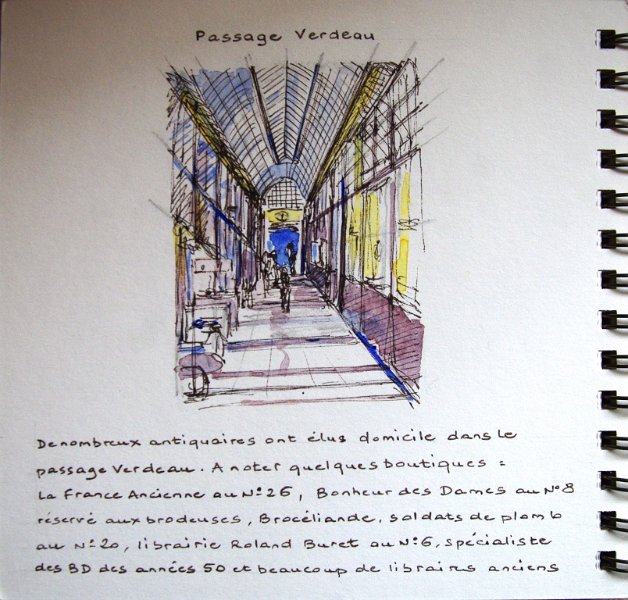 Passage Verdeau
De nombreux antiquaires ont élus domicile dans le
passage Verdeau. A noter quelques boutiques :
La France Ancienne au N° 26, Bonheur des Dames au N° 8
réservé aux brodeuses, Brocéliande, soldats de plomb
au N° 20, librairie Roland Buret au N° 6, spécialiste
des BD des années 50 et beaucoup de libraires anciens